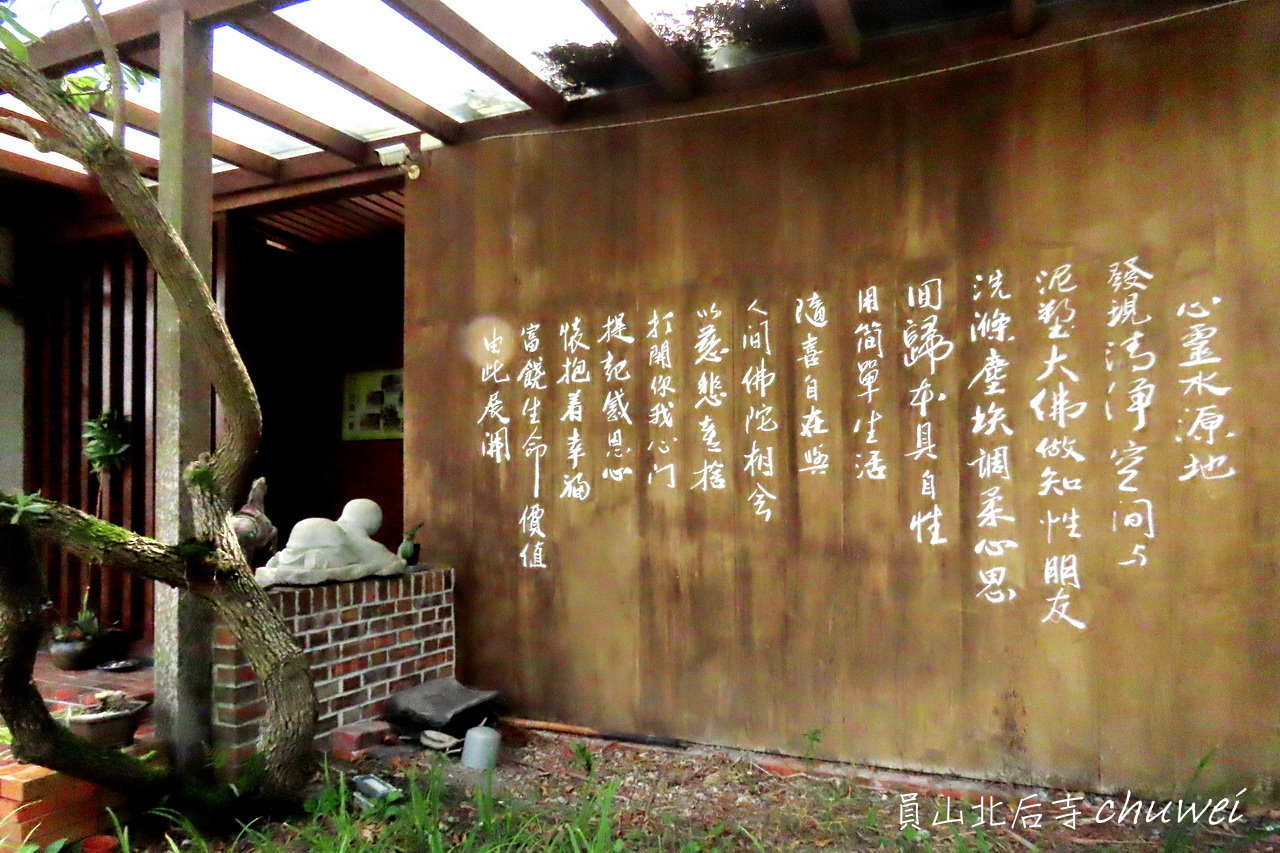 心靈水源地
發現清淨空間与
泥塑大佛做知性朋友
洗滌塵埃調柔心思
回歸本具自性
用简單生活
隨喜自在與
人间佛陀相会
以慈悲喜捨
打開你我心门
提起感恩心
懷抱着幸福
富饒生命價值
由此展開
員山北后寺 chuwei